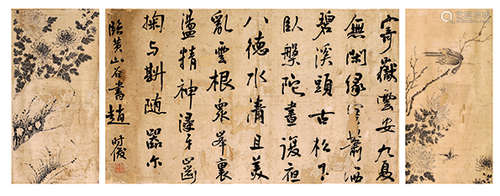 寄嶽雲安九夏
無閑緣蕭洒
碧溪頭古松下
臥盤陀晝復夜
八德水清且美
亂雲根眾峯裏
盪精神濯牙齒
掬与斟隨器尔
臨黃山谷書趙時